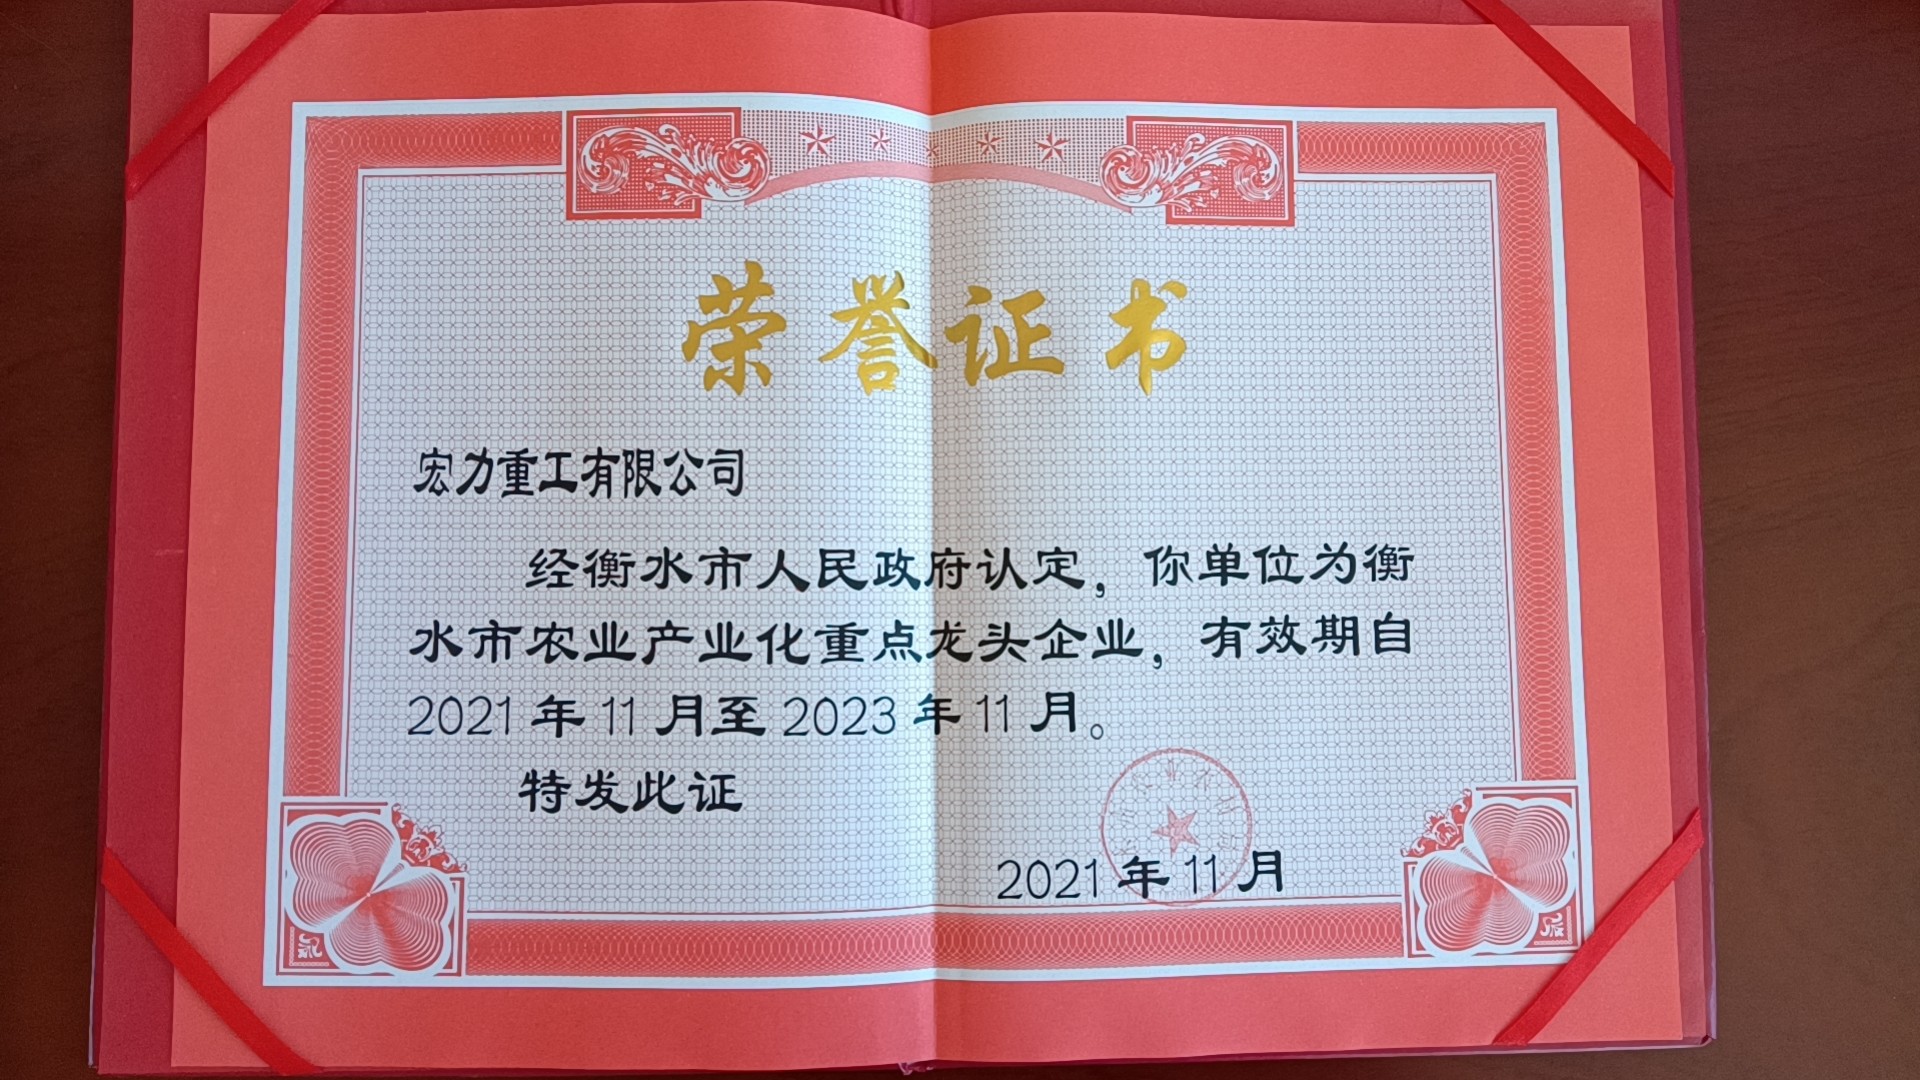 荣誉证书
宏力重工有限公司
经衡水市人民政府认定，你单位为衡
水市农业产业化重点龙头企业，有效期自
2021年11月至2023年11月。
特发此证
2021年11月